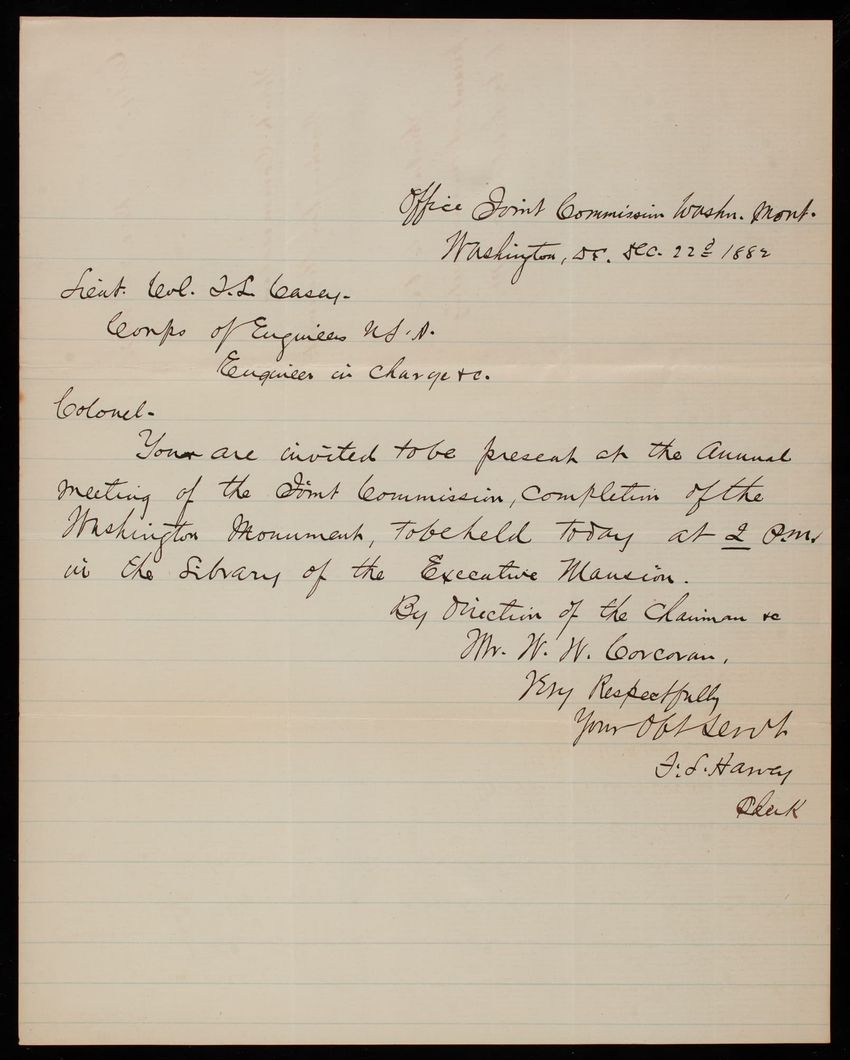 Office Joint Commission Washn. Mont.
Washington, DC. Dec. 22d 1882
Lieut. Col. T. L. Casey-
Corps of Engineers U.S.A.
Engineer in charge &c.
Colonel-
You are invited to be present at the Annual
meeting of the Joint Commission, completion of the
Washington Monument, to be held today at 2 P.m.
in the Library of the Executive Mansion.
By Direction of the Chairman &c
Mr. W. W. Corcoran,
Very Respectfully
Your Obt Servt
F. L. Harvey
Clerk